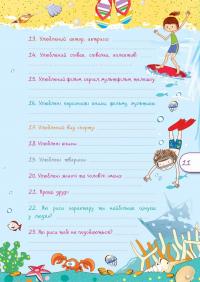 13. Улюблений актор, актриса
14. Улюблений співак, співачка, колектив
15. Улюблений фільм, серіал, мультфільм, телешоу
16. Улюблені персонажі книги, фільму, мультика
17. Улюблений вид спорту
18. Улюблені книги
19. Улюблені тварини
20. Улюблені жіночі та чоловічі імена
21. Кращі друзі
22. Які риси характеру ти найбільше цінуєш
у людях?
23. Які риси тобі не подобаються?
11